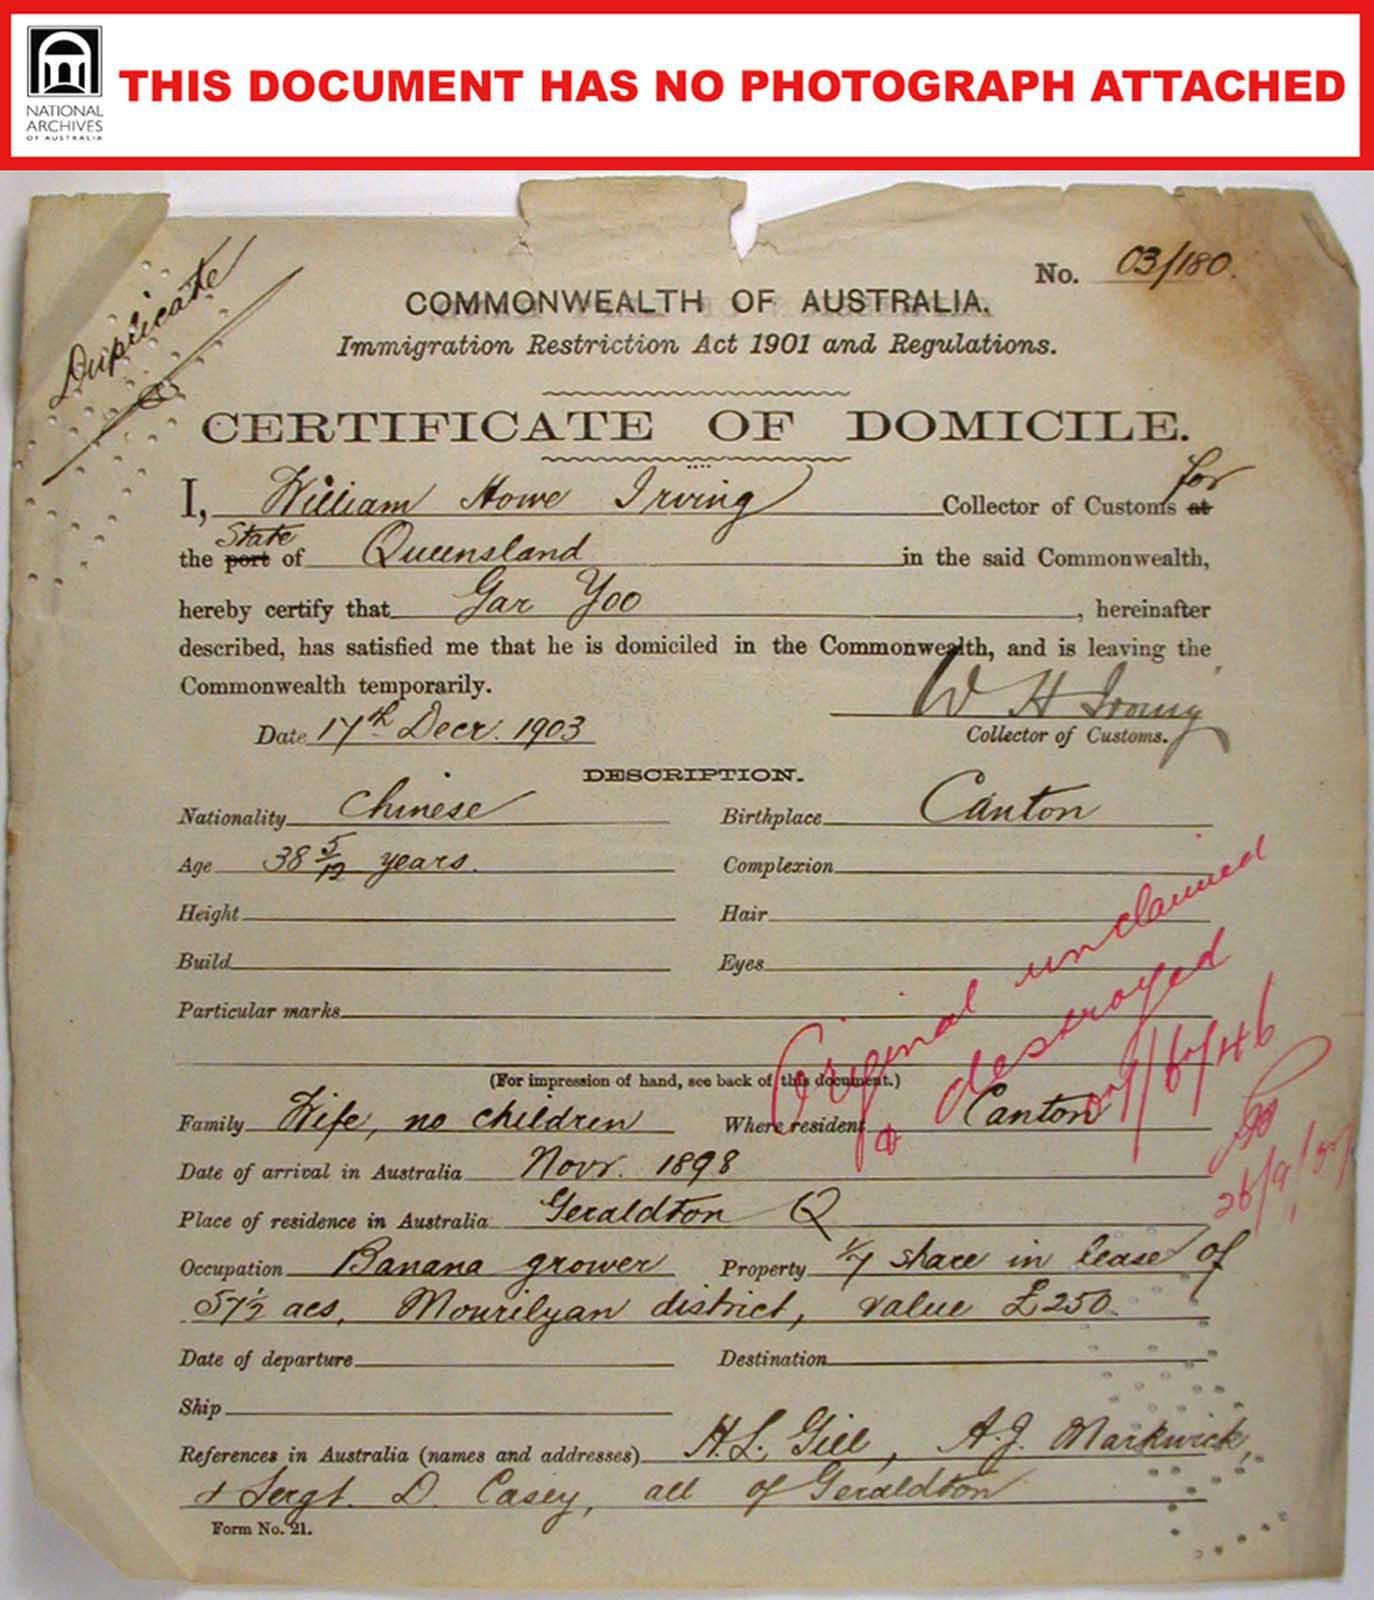 NATIONAL
ARCHIVES
OF AUSTRALIA
THIS DOCUMENT HAS NO PHOTOGRAPH ATTACHED
Duplicate
No. 03/180.
COMMONWEALTH OF AUSTRALIA.
Immigration Restriction Act 1901 and Regulations.
CERTIFICATE OF DOMICILE.
for
I, William Howe Irving Collector of Customs at
State
the port of Queensland in the said Commonwealth,
hereby certify that Gar Yoo, hereinafter
described, has satisfied me that he is domiciled in the Commonwealth, and is leaving the
Commonwealth temporarily.
W H Irving
Date 17th Decr. 1903
Collector of Customs.
DESCRIPTION.
Nationality Chinese Birthplace Canton
Age 38 5/12 years. Complexion
Height Hair
Build Eyes
Particular marks
Original unclaimed
& destroyed
(For impression of hand, see back of this document.)
Family Wife, no children Where resident Canton
Date of arrival in Australia Novr. 1898
Place of residence in Australia Geraldton Q
Occupation Banana grower Property 1/7 share in lease of
57½ acs, Mourilyan district, value £250.
Date of departure Destination
Ship
References in Australia (names and addresses) H.L. Gill, A.J. Markwick,
& Sergt. D. Casey, all of Geraldton
Form No. 21.